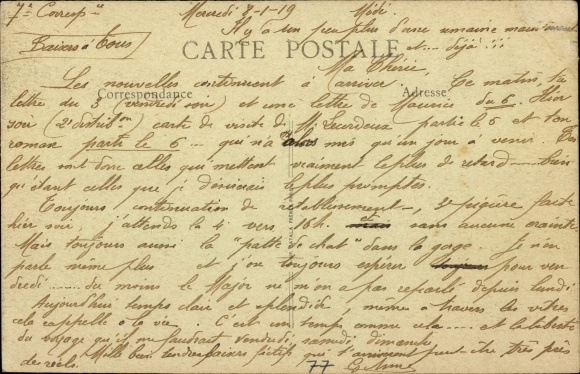 7e Corresp ce Mercredi 8-1-19 Midi.
Il y a un peu plus d'une semaine maintenant
Baisers à Tous et ... déjà !!
CARTE POSTALE
Ma Chérie,
Les nouvelles continuent à arriver. Ce matin, ta
Correspondance Adresse
lettre du 3 (vendredi soir) et une lettre de Maurice du 6. Hier
soir (2e distrib on) carte de visite de M. partie le 6 et ton
roman partie le 6 ... qui n'a mis qu'un jour à venir. Tes
lettres sont donc celles qui mettent vraiment le plus de retard
qu'étant celles que je désirerais le plus promptes.
Toujours continuation de rétablissement, 2e piqûre faite
hier soir, j'attends la 4e vers 16h. et sans aucune crainte.
Mais toujours aussi la "patte de chat" dans la gage. Je n'en
parle même plus et j'ai toujours espérer pour ven
dredi ...... du moins le Major ne m'en a pas reparlé depuis lundi
Aujourd'hui temps clair et splendide, même à travers les vitres
cela rappelle à la vie. C'est un temps comme cela ... et la liberté
du voyage qu'il me faudrait vendredi, samedi, dimanche
Mille bons tendres baisers fictifs que t'arriveront peut-être très près
des réels. 77